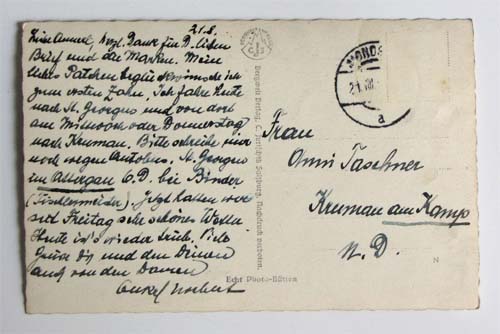 21.8.
herzl. Dank für D. lieben
Brief und die Marken. Mein
liebes Patchen beglückwünsche ich
zum ersten Zahn. Ich fahre heute
nach St. Georgen und von dort
am Mittwoch oder Donnerstag
nach Kruman. Bitte schreibe mir
noch wegen Autobus. St. Georgen
im Attergau O.D. bei Binder
(Tischlermeister) Jetzt hatten wir
seit Freitag sehr schönes Wetter
heute ist's wieder trüb. Viele
Grüsse Dir und den Deinen
auch von den Damen
Onkel Norbert
Bergwelt Verlag, C. Jurischek, Salzburg. Nachdruck verboten.
Echt Photo-Bütten
N
21. VIII.
a
Frau
Omi Taschner
Kruman am Kamp
N. D.